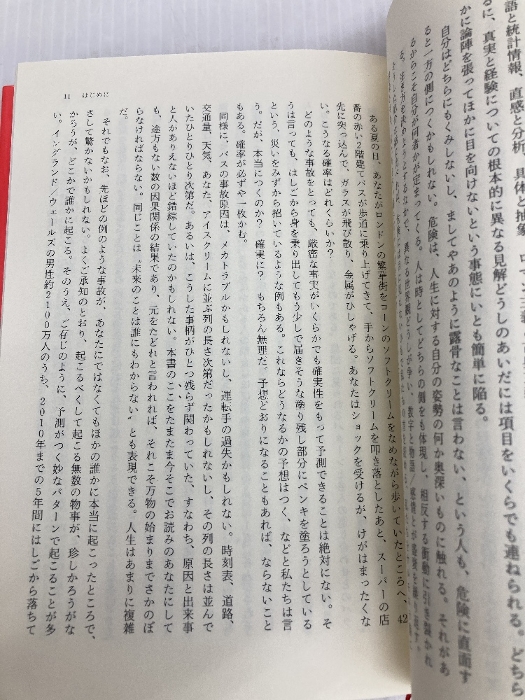 語と統計情報、直感と分析、具体と抽象、
るに、真実と経験についての根本的に異なる見解どうしのあいだには項目をいくらでも連ねられる。どちら
かに論陣を張ってほかに目を向けないという事態にいとも簡単に陥る。
自分はどちらにもくみしないし、ましてやあのように露骨なことは言わない、という人も、危険に直面す
ると一方の側につくかもしれない。危険は、人生に対する自分の姿勢の何か奥深いものに触れる。それがあ
るからこそ自分が何者かが定まってくる。人は時としてどちらの側をも体現し、相反する衝動に引き裂かれ
11 はじめに
ある夏の日、あなたがロンドンの繁華街をコーンのソフトクリームをなめながら歩いていたところへ、42
番の赤い2階建てバスが歩道に乗り上げてきて、手からソフトクリームを叩き落としたあと、スーパーの店
先に突っ込んで、ガラスが飛び散り、金属がひしゃげる。あなたはショックを受けるが、けがはまったくな
い。こうなる確率はどれくらいか?
どのような事故をとっても、厳密な事実がいくらかでも確実性をもって予測できることは絶対にない。そ
うは言っても、はしごから身を乗り出してもう少しで届きそうな塗り残し部分にペンキを塗ろうとしている
という、災いをみずから招いているような例もある。これならどうなるかの予想はつく、などと私たちは言
う。だが、本当につくのか? 確実に? もちろん無理だ。予想どおりになることもあれば、ならないこと
もある。確率が必ずや一枚かむ。
同様に、バスの事故原因は、メカトラブルかもしれないし、運転手の過失かもしれない。時刻表、道路、
交通量、天気、あなた、アイスクリームに並ぶ列の長さ次第だったかもしれないし、その列の長さは並んで
いたひとりひとり次第だ。あるいは、こうした事柄がひとつ残らず関わっていた、すなわち、原因と出来事
と人がありえないほど錯綜していたのかもしれない。本書のここをたまたま今そこでお読みのあなたにして
も、途方もない数の因果関係の結果であり、元をたどれと言われれば、それこそ万物の始まりまでさかのぼ
らなければならない。同じことは、未来のことは誰にもわからない、とも表現できる。人生はあまりに複雑
だ。
それでもなお、先ほどの例のような事故が、あなたにではなくてもほかの誰かに本当に起こったところで、
さして驚かないかもしれない。よくご承知のとおり、起こるべくして起こる無数の物事が、珍しかろうがな
かろうが、どこかで誰かに起こる。そのうえ、ご存じのように、予測がつく妙なパターンで起こることが多
い。イングランド／ウェールズの男性約2100万人のうち、2010年までの5年間にはしごから落ちて